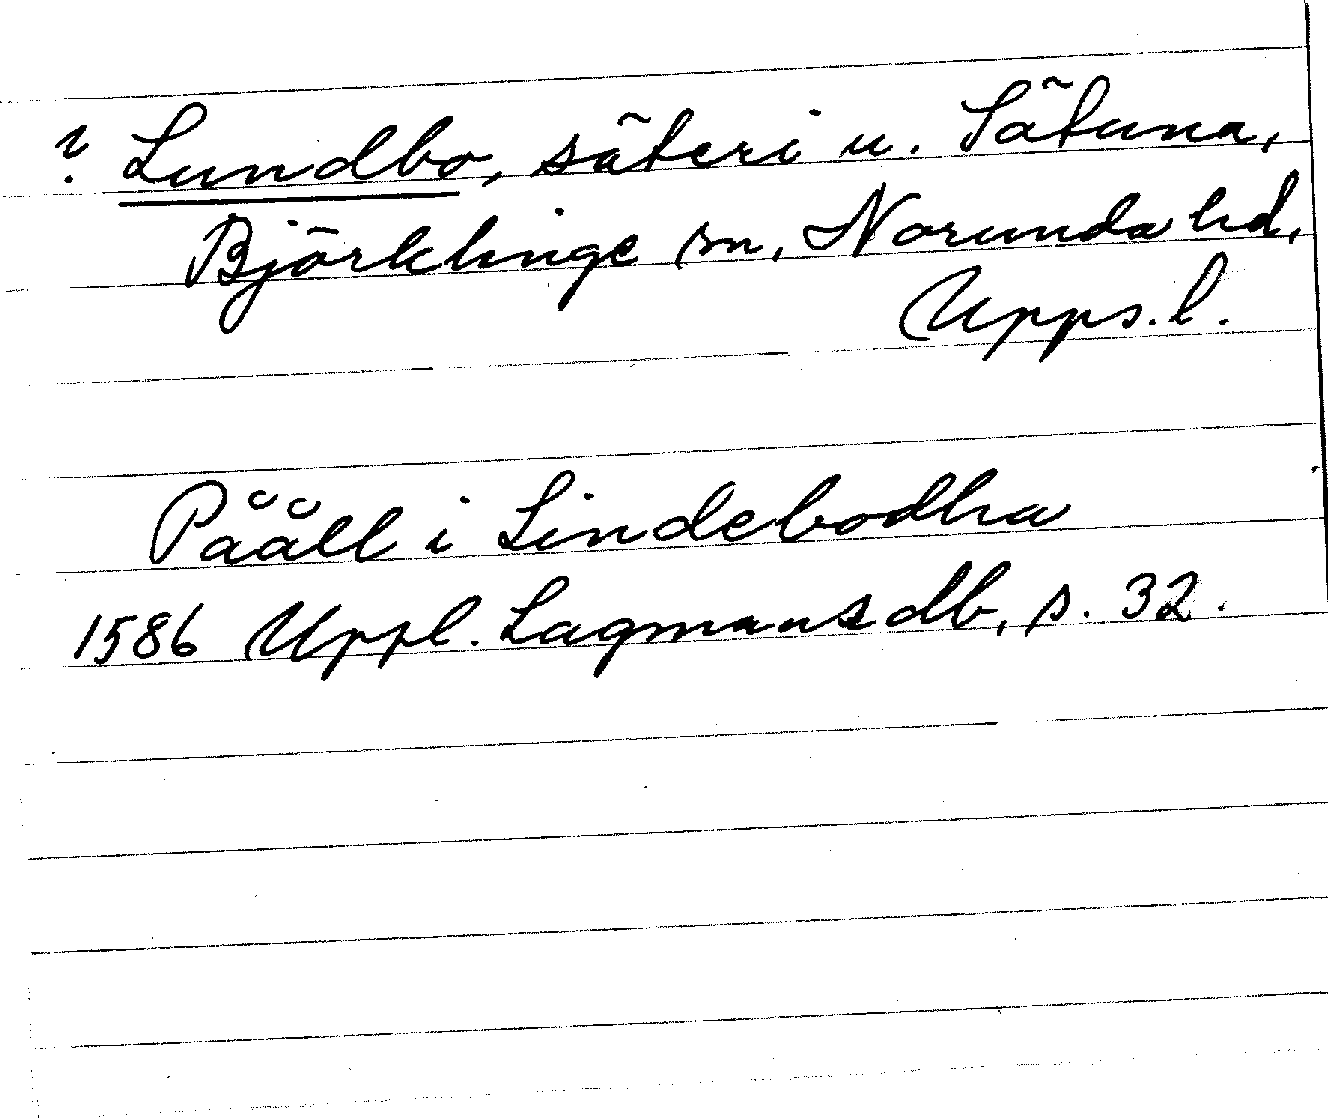 ? Lundbo, säteri u. Sätuna,
Björklinge sn, Norunda hd,
Upps. l.
Pååll i Lindebodha
1586 Uppl. Lagmansdb, s. 32.